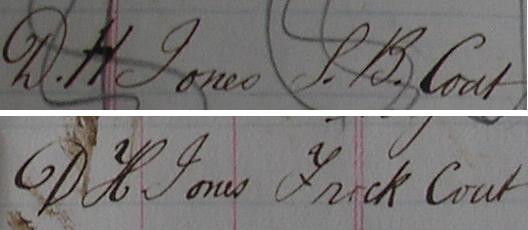 D. H Jones S. B. Coat
D H Jones Frock Coat